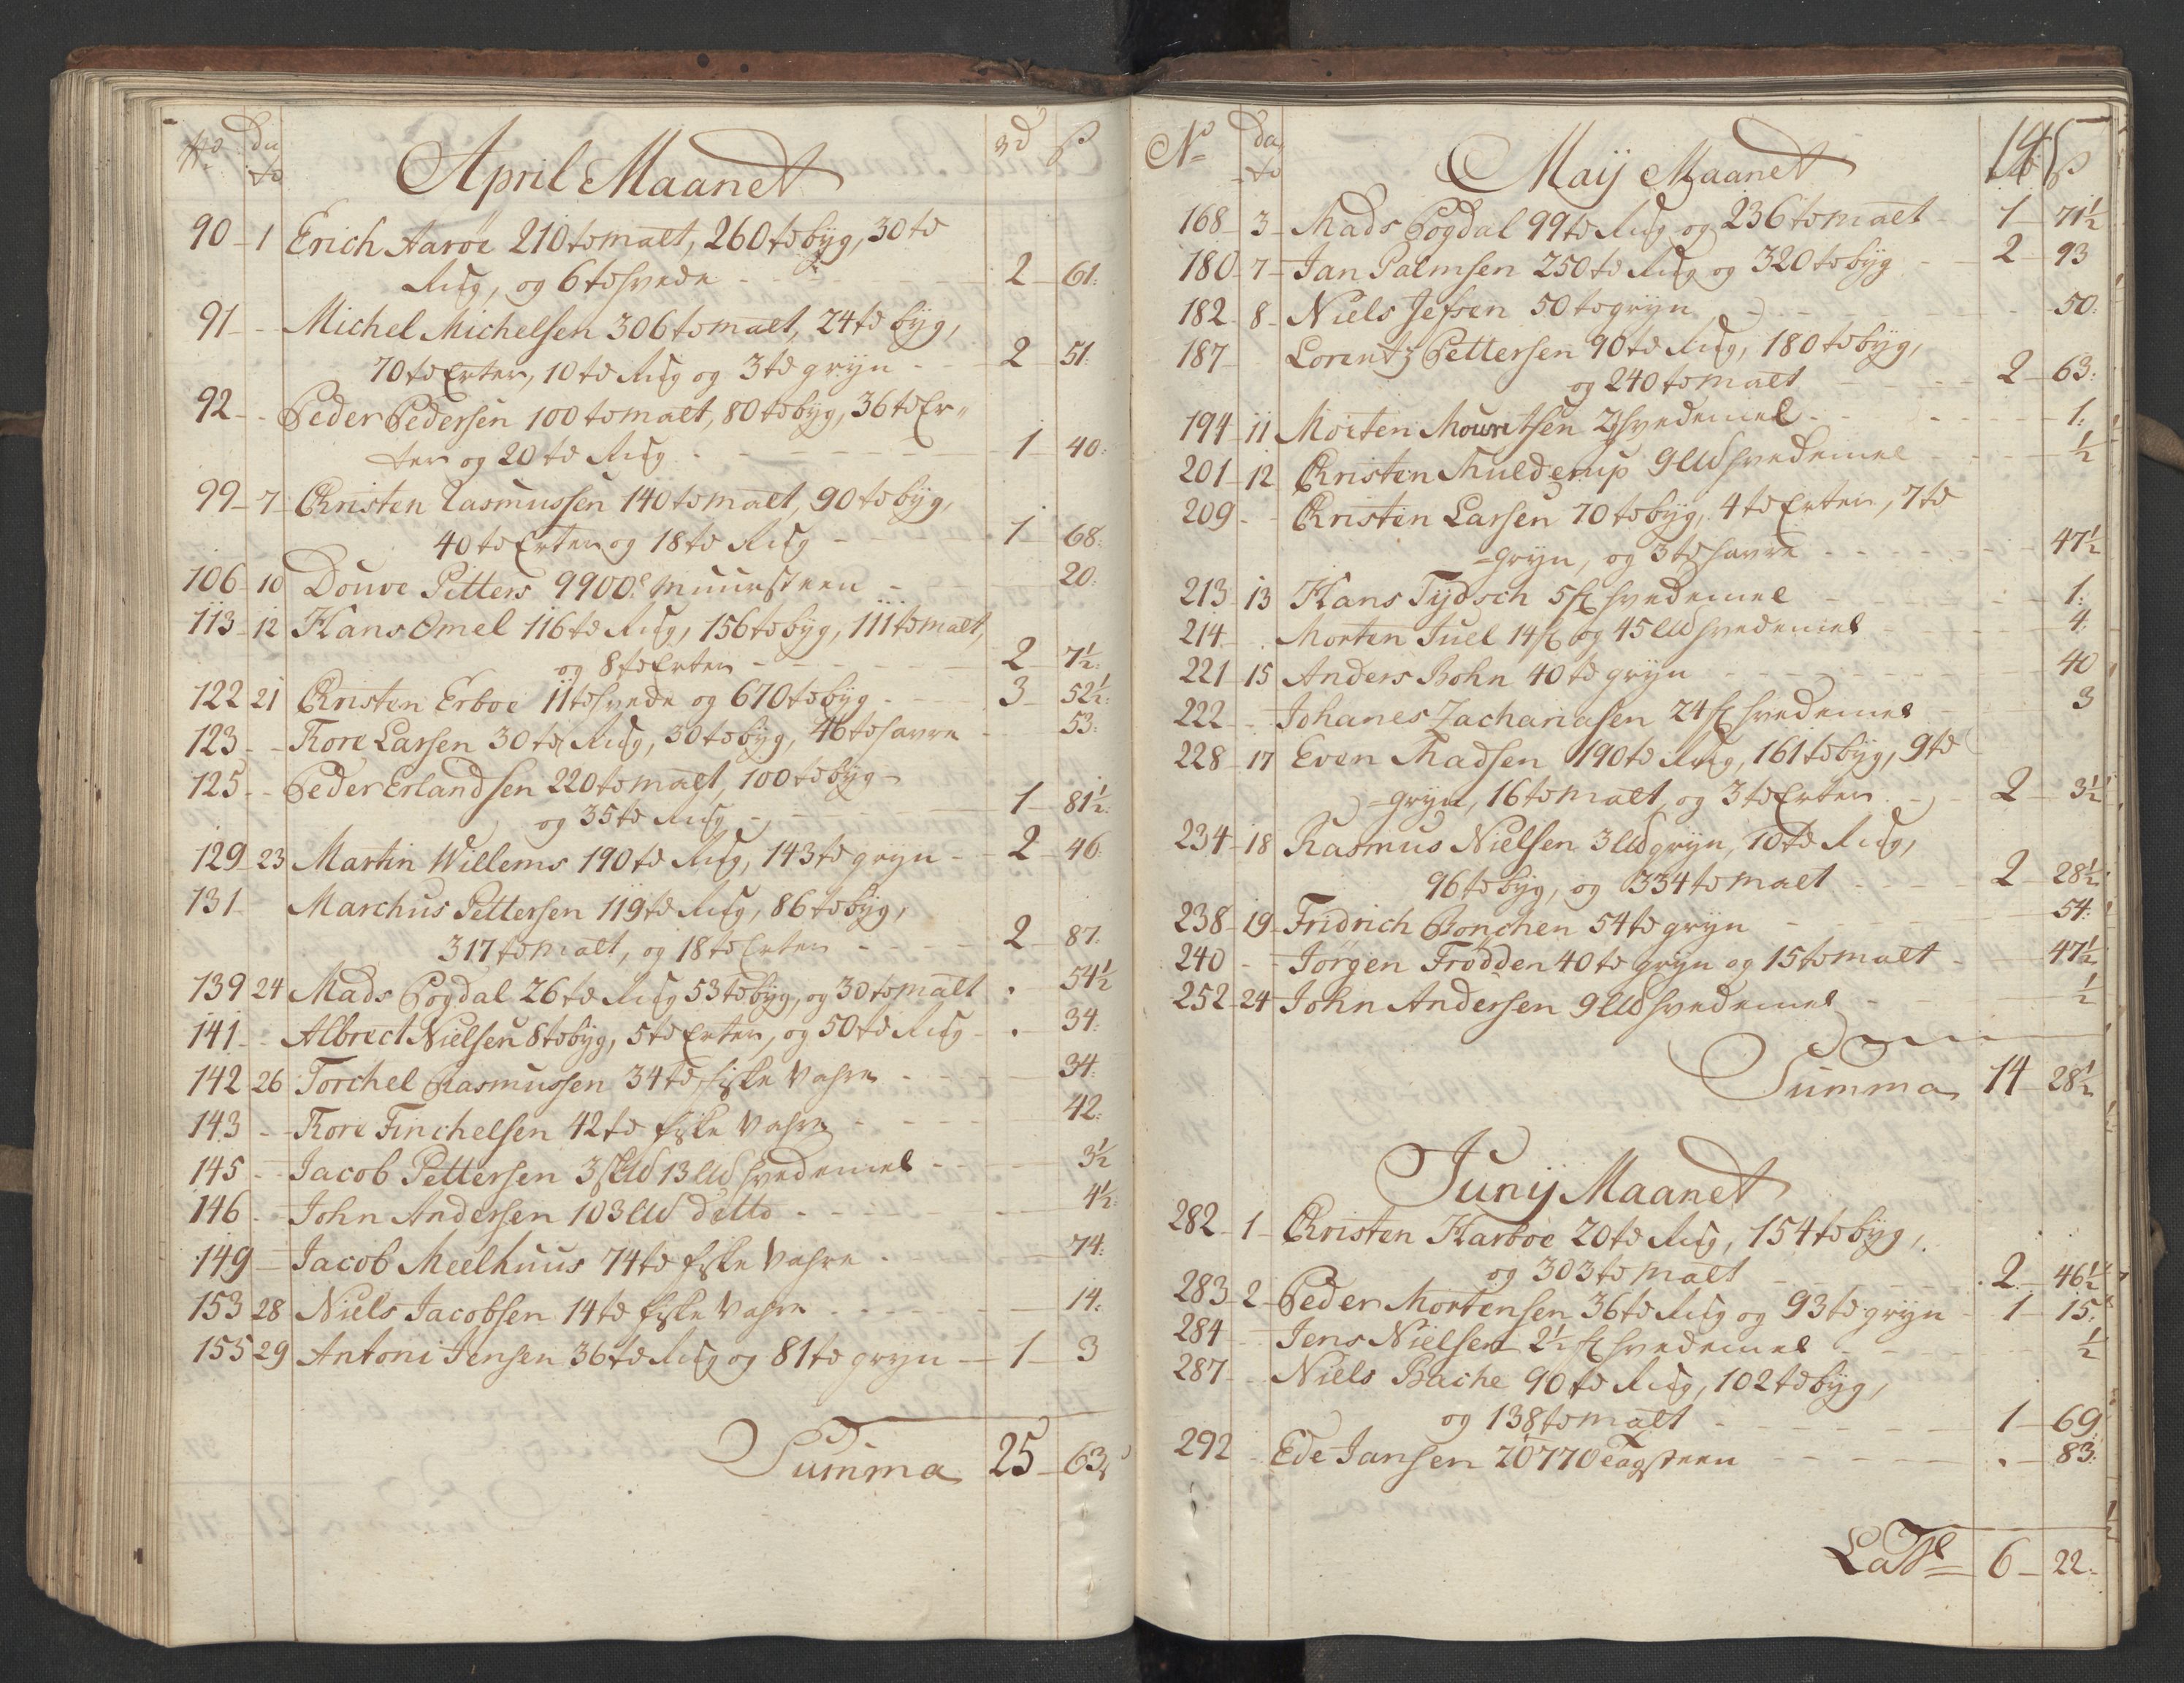 No dato April Maanet rd ß
90 - 1 Erich Aaroe 210 td malt, 260 td byg, 30 td
Rug, og 6 td hvede - - 2 - 61:
91 - - Michel Michelsen 306 td malt, 24 td byg,
70 td Erter, 10 td Rug og 3 td gryn - - 2 - 51:
92 - - Peder Pedersen 100 td malt, 80 td byg, 36 td Er"
ter og 20 td Rug - - - 1 - 40:
99 - 7 - Christen Rasmussen 140 td malt, 90 td byg,
40 td Erter og 18 td Rug - 1 - 68:
106 - 10 Douve Pitters 9900 Muursteen - 20:
113 - 12 Hans Omel 116 td Rug, 156 td byg, 111 td malt,
og 8 td Erter - - - 2 - 7½:
122 21 Christen Erboe 11 td hvede og 670 td byg - - 3 - 52½:
123 - - Tore Larsen 30 td Rug, 30 td byg, 46 td havre - 53:
125 - - Peder Erlandsen 220 td malt, 100 td byg -
og 35 td Rug - - - 1 - 81½:
129 - 23 Martin Willems 190 td Rug, 143 td gryn - - 2 - 46:
131 Marchus Pettersen 119 td Rug, 86 td byg,
317 td malt, og 18 td Erter - - - 2 - 87:
139 24 Mads Pogdal 26 td Rug 53 td byg, og 30 td malt . 54½
141 - - Albrect Nielsen 8 td byg, 5 td Erter, og 50 td Rug - . 34:
142 26 Torchel Rasmussen 34 td fiske Vahre - - - 34:
143 - - Tore Finchelsen 42 td fiske Vahre - - - 42:
145 - - Jacob Pettersen 3 13 hvedemel - - - 3½
146 - - John Andersen 103 ditto - - - 4½:
149 - Jacob Meelhuus 74 td fiske Vahre - 74:
153 28 Niels Jacobsen 14 td fiske Vahre - - - 14:
155 29 Antoni Jensen 36 td Rug og 81 td gryn - 1 - 3
Summa 25 - 63
No dato Maij Maanet 145 ß
168 - 3 - Mads Pogdal 99 td Rug og 236 td malt - 1 - 71½
180 - 7 - Jan Palmsen 250 td Rug og 320 td byg - - 2 - 93
182 - 8 - Niels Jefsen 50 td gryn - - - 50:
187 - Lorentz Pettersen 90 td Rug, 180 td byg,
og 240 td malt - - - 2 - 63:
194 - 11 Morten Mouritsen hvedemel - - - 1:
201 - 12 Christen Mulderup 9 hvedemel - - - ½
209 - - Christen Larsen 70 td byg, 4 td Erter, 7 td
gryn, og 3 td havre - - - 47½
213 - 13 Hans Tydsch 5 hvedemel - - - 1:
214 - . Morten Juel 14 og 45 hvedemel - - 4:
221 - 15 Anders Bohn 40 td gryn - - - 40
222 - - Johanes Zachariasen 24 hvedemel - - 3
228 - 17 Even Madsen 190 td Rug, 161 td byg, 9 td
gryn, 16 td malt, og 3 td Erter - - 2 - 3½
234 - 18 Rasmus Nielsen 3 gryn, 10 td Rug,
96 td byg, og 334 td malt - - - 2 - 28½
238 - 19 - Fridrich Bonchen 54 td gryn - - 54:
240 - - Jørgen Frodden 40 td gryn og 15 td malt - 47½
252 - 24 - John Andersen 9 hvedemel - ½
Summa 14 - 28½
Junij Maanet
282 - 1 - Christen Harboe 20 td Rug, 154 td byg,
og 303 td malt - - - 2 - 46½
283 - 2 - Peder Mortensen 36 td Rug og 93 td gryn - 1 - 15:
284 - Jens Nielsen 2½ hvedemel - - - ½
287 - - Niels Bache 90 td Rug, 102 td byg,
og 138 td malt - - - 1 - 69
292 - Ede Jansen 20770 Tagsteen - - - . - 83:
6 - 22: